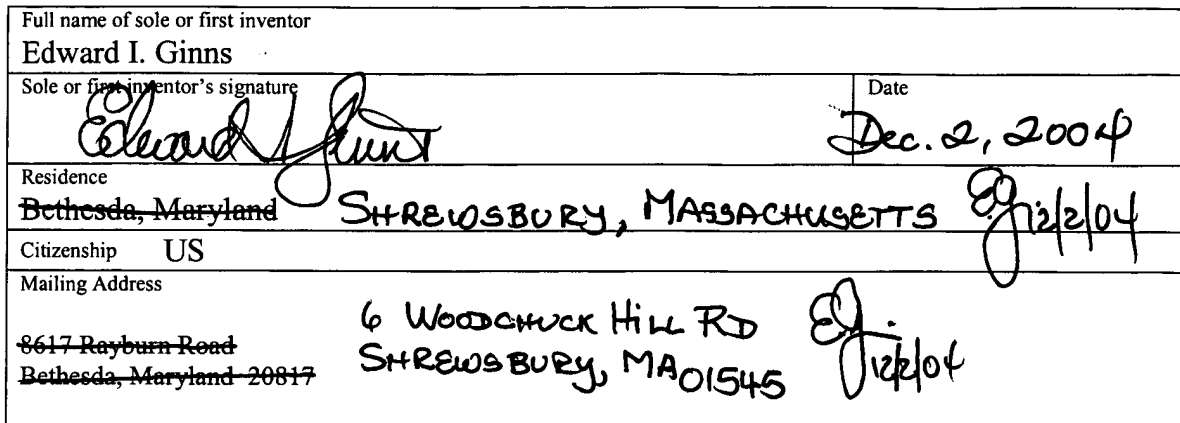 Full name of sole or first inventor
Edward I. Ginns
Sole or first inventor's signature
Edward I Ginns
Date
Dec. 2, 2004
Residence
Bethesda, Maryland SHREWSBURY, MASSACHUSETTS E.G. 12/2/04
Citizenship US
Mailing Address
8617 Rayburn Road
Bethesda, Maryland 20817
6 WOODCHUCK HILL RD
SHREWSBURY, MA 01545
E.G. 12/2/04